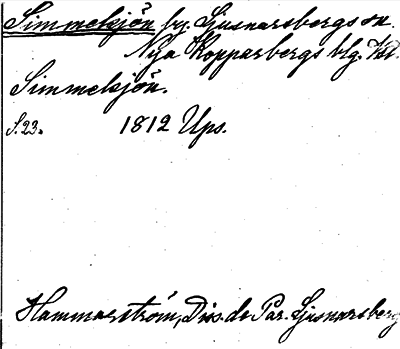 Simmelsjön by. Ljusnarsbergs sn.
Nya Kopparbergs blg. Vstm.
Simmelsjön.
S. 23. 1812 Ups.
Hammarström, Diss. de Par. Ljusnarsberg